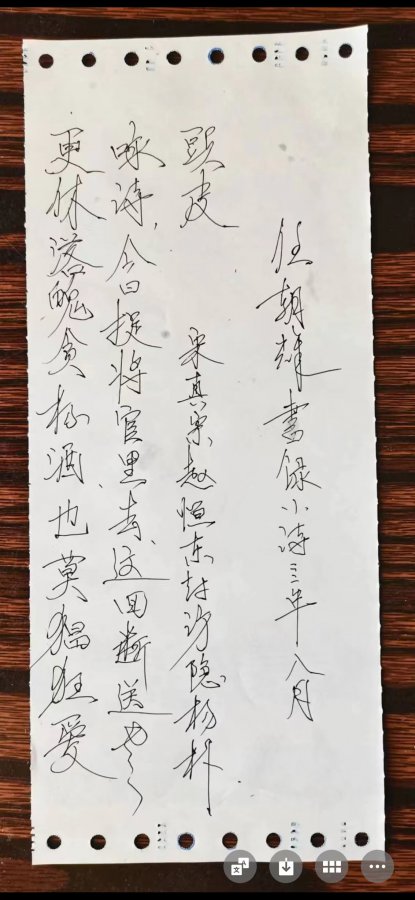 更休落魄貪杯酒、也莫猖狂愛
咏诗,今日捉将官里去、这回断送老
頭皮
宋真宗赵恒东封访隐杨朴
任朝輝書録小诗三年八月